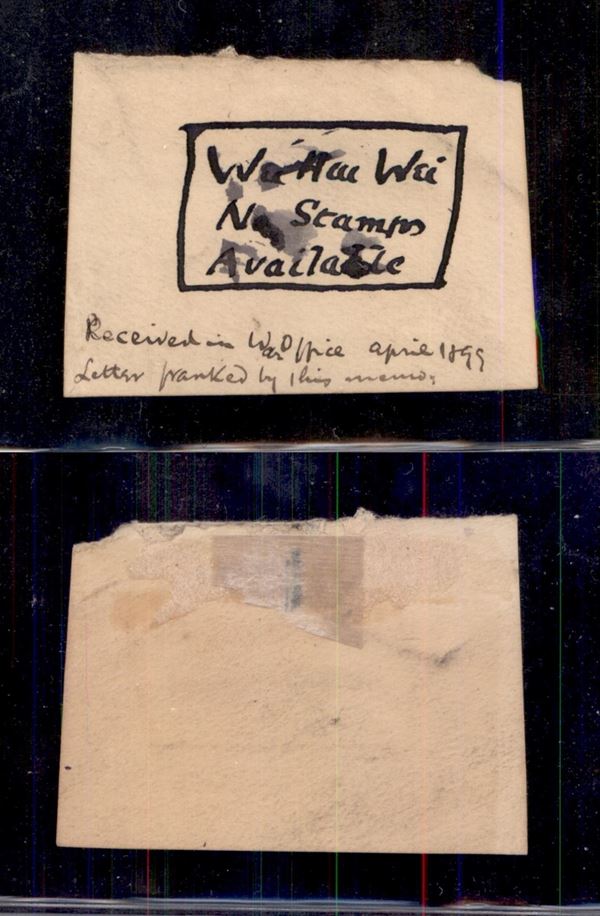 Wei Hai Wei
No Stamps
Available
Received in War Office april 1899
Letter franked by this memo: